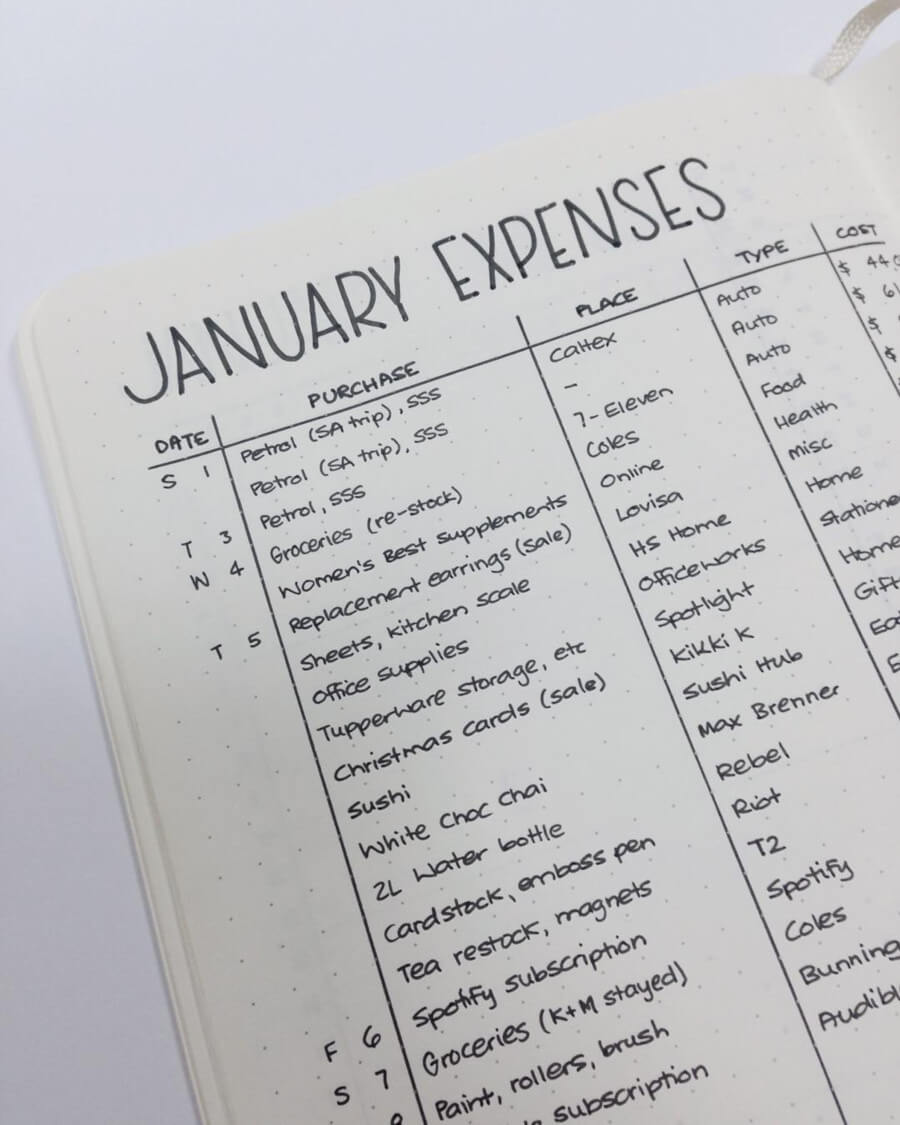 JANUARY EXPENSES
DATE PURCHASE PLACE TYPE COST
S 1 Petrol (SA trip), SSS Caltex Auto $ 44
Petrol (SA trip), SSS – Auto $ 61
T 3 Petrol, SSS 7-Eleven Auto $
W 4 Groceries (re-stock) Coles Food $
Women's Best supplements Online Health
T 5 Replacement earrings (sale) Lovisa misc
Sheets, kitchen scale HS Home Home
Office supplies Officeworks Statione
Tupperware storage, etc Spotlight Home
Christmas cards (sale) Kikki K Gift
Sushi Sushi Hub Ea
White choc chai Max Brenner E
2L water bottle Rebel
Cardstock, emboss pen Riot
Tea restock, magnets T2
F 6 Spotify subscription Spotify
S 7 Groceries (K+M stayed) Coles
8 Paint, rollers, brush Bunning
subscription Audibl